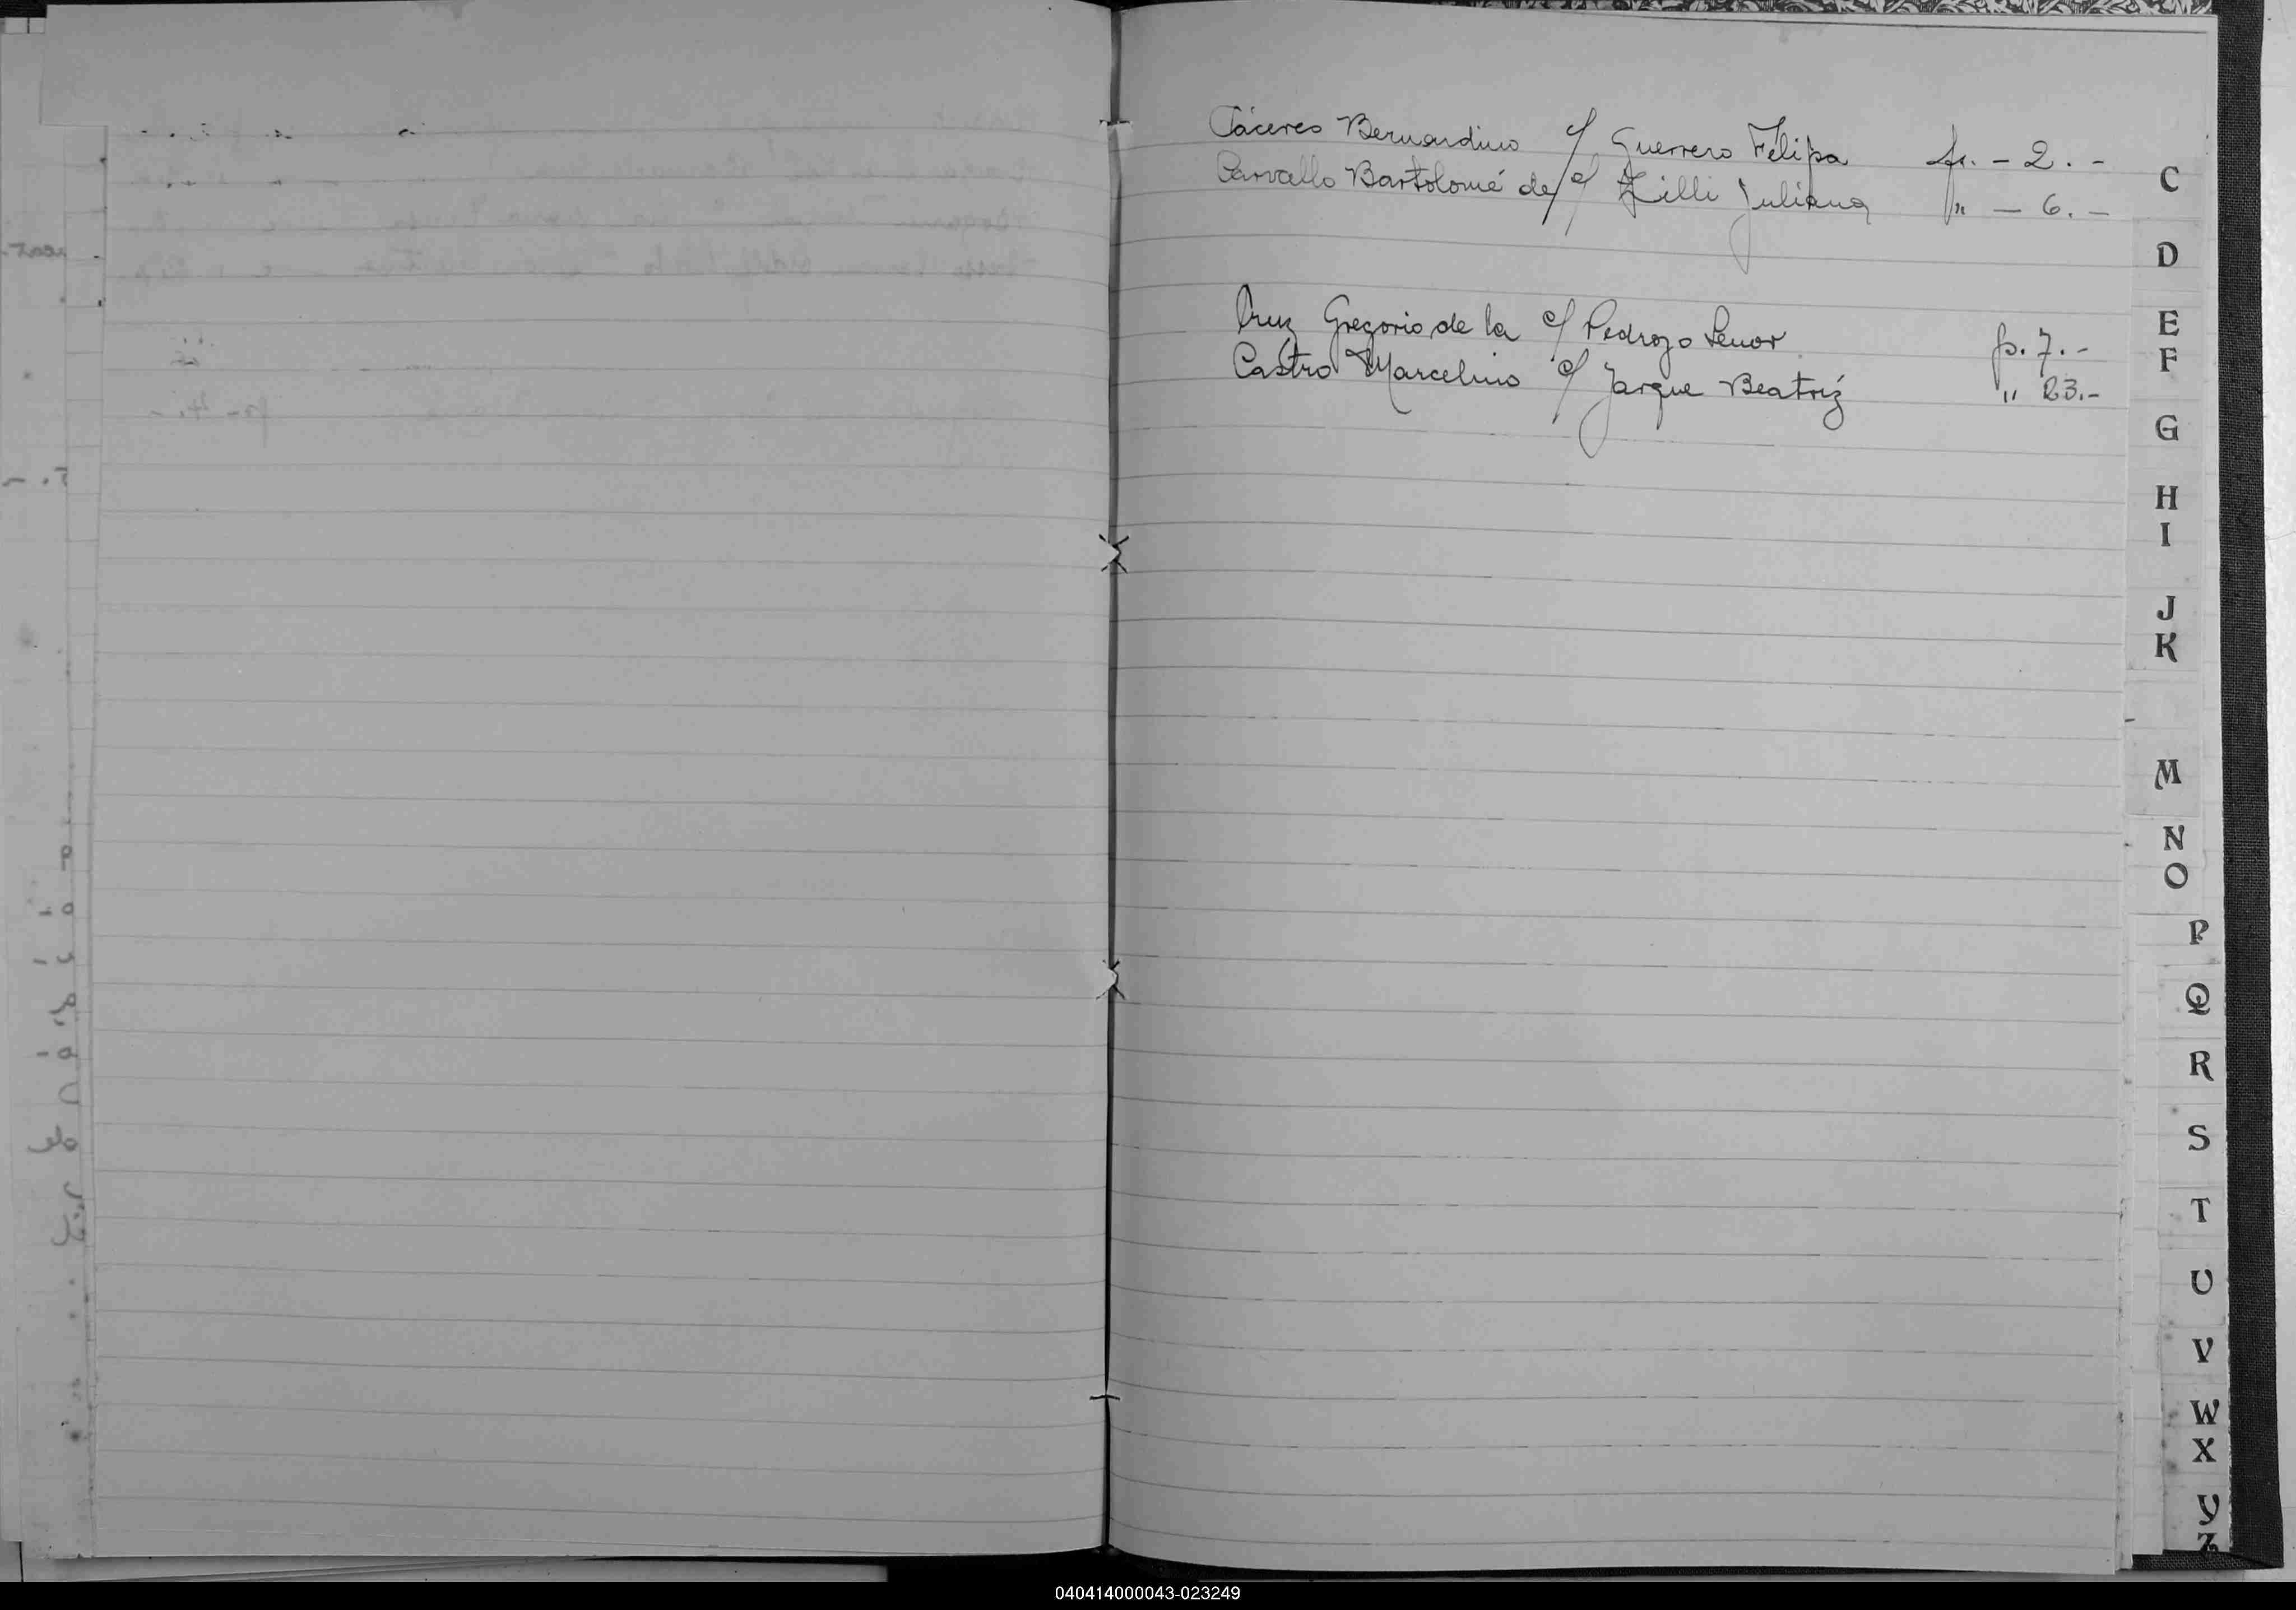 Cáceres Bernardino c/ Guerrero Felipa fs. - 2. -
Carvallo Bartolomé de c/ Zilli Juliana " - 6. -
Cruz Gregorio de la c/ Pedrozo Lenor p. 7. -
Castro Marcelino c/ Jarque Beatriz " 23. -
C
D
E
F
G
H
I
J
K
M
N
O
P
Q
R
S
T
U
V
W
X
Y
Z
040414000043-023249